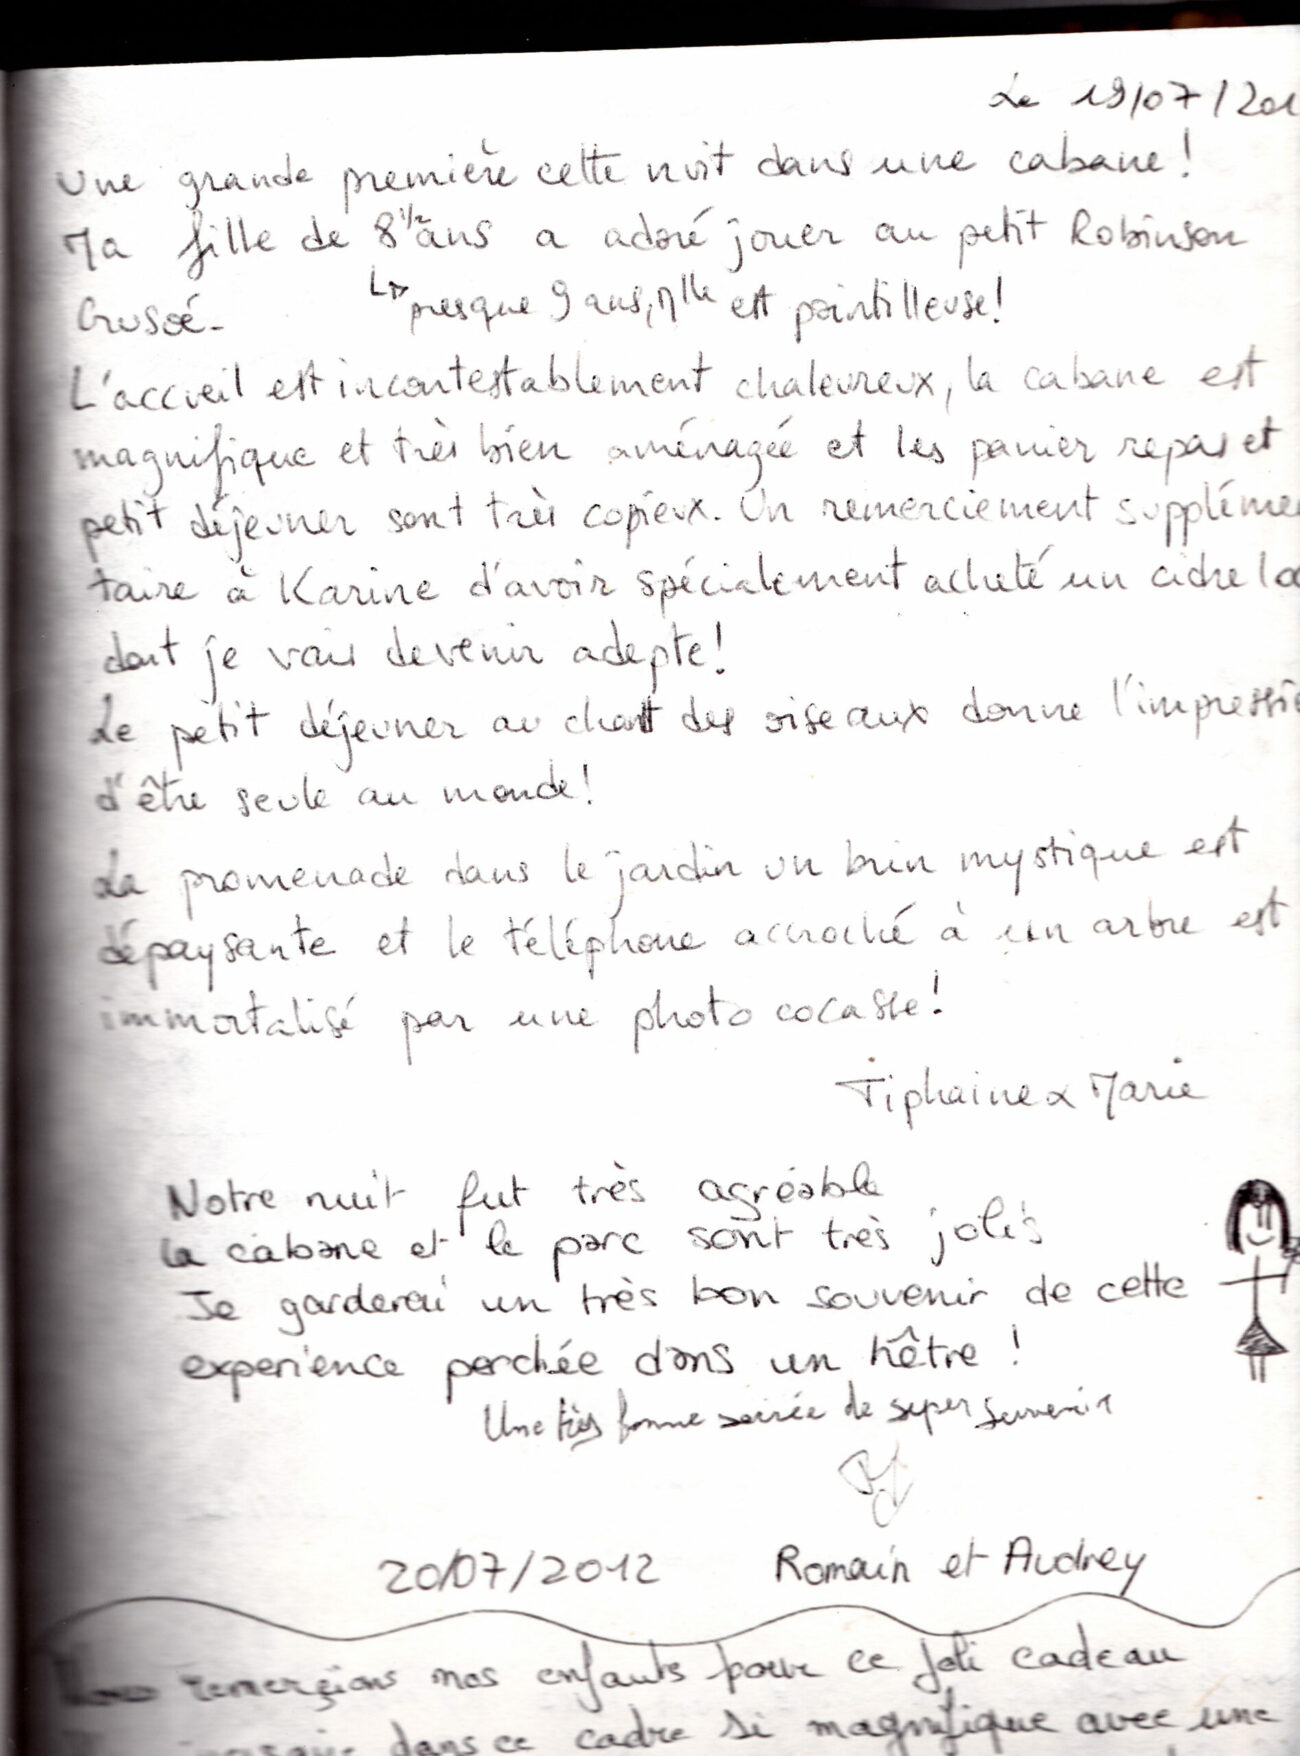 Le 19/07/201
Une grande première cette nuit dans une cabane!
Ma fille de 8 1/2 ans a adoré jouer au petit Robinson
Crusoé.
↳ presque 9 ans, Mlle est pointilleuse!
L'accueil est incontestablement chaleureux, la cabane est
magnifique et très bien aménagée et les panier repas et
petit déjeuner sont très copieux. Un remerciement supplémen
taire à Karine d'avoir spécialement acheté un cidre loc
dont je vais devenir adepte!
Le petit déjeuner au chant des oiseaux donne l'impressio
d'être seule au monde!
La promenade dans le jardin un brin mystique est
dépaysante et le téléphone accroché à un arbre est
immortalisé par une photo cocasse!
Tiphaine & Marie
Notre nuit fut très agréable
la cabane et le parc sont très jolis
Je garderai un très bon souvenir de cette
experience perchée dans un hêtre !
Une très bonne soirée de super souvenir
20/07/2012 Romain et Audrey
Nous remerçions nos enfants pour ce joli cadeau
dans ce cadre si magnifique avec une